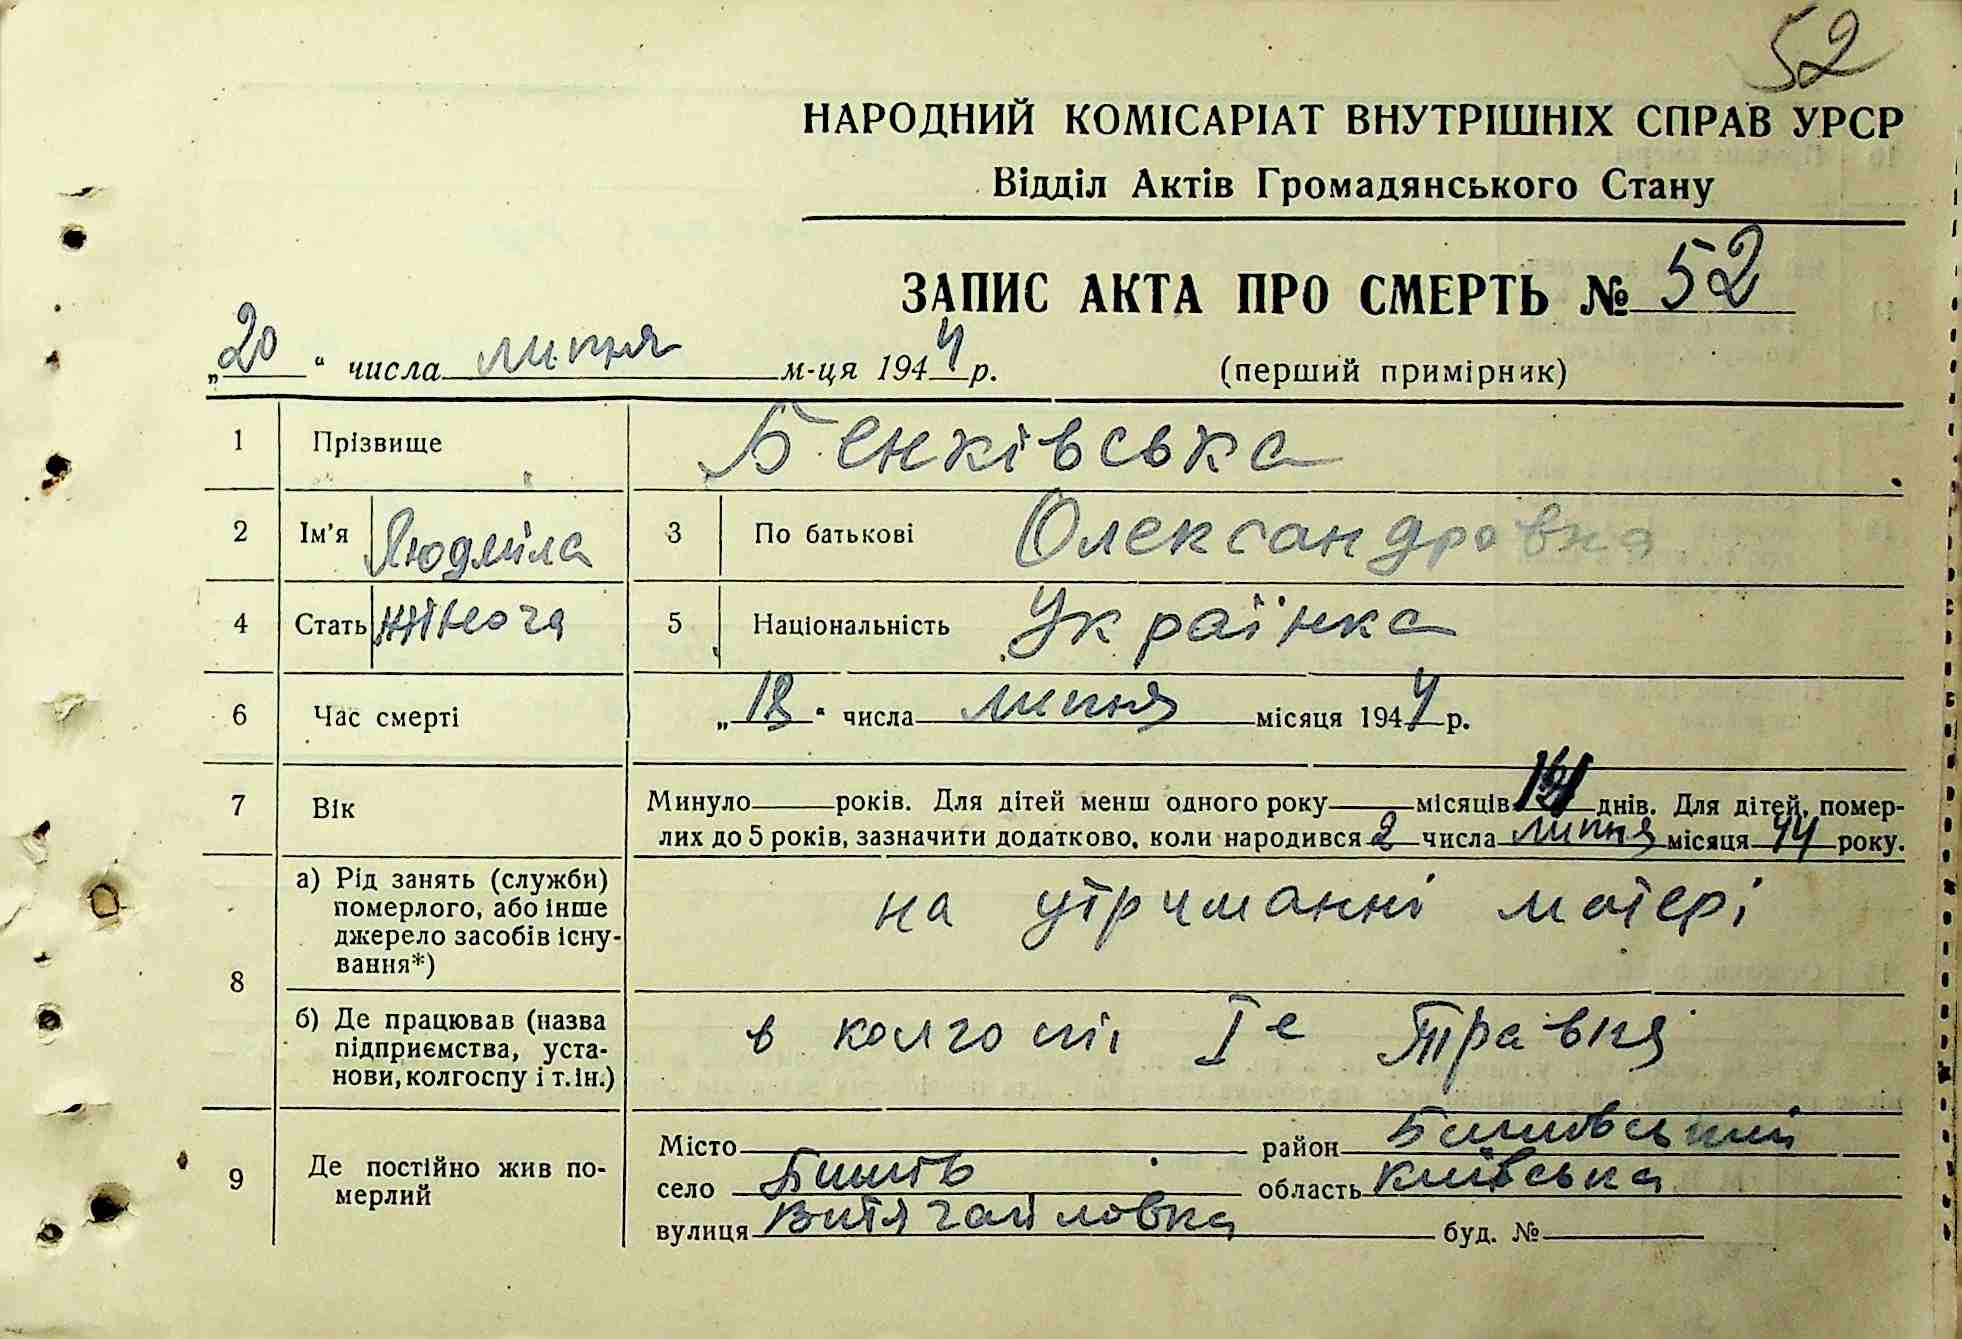 52
НАРОДНИЙ КОМІСАРІАТ ВНУТРІШНІХ СПРАВ УРСР
Відділ Актів Громадянського Стану
ЗАПИС АКТА ПРО СМЕРТЬ № 52
„20“ числа липня м-ця 1944 р. (перший примірник)
1 Прізвище Бенківська
2 Ім'я Людміла 3 По батькові Олександровна
4 Стать жіноча 5 Національність Українка
6 Час смерті „18“ числа липня місяця 1944 р.
7 Вік Минуло років. Для дітей менш одного року місяців днів. Для дітей, помер-
лих до 5 років, зазначити додатково, коли народився 2 числа липня місяця 44 року.
8 а) Рід занять (служби) померлого, або інше джерело засобів існу-вання*) на утриманні матері
б) Де працював (назва підприємства, уста-нови, колгоспу і т. ін.) в колгоспі 1е Травня
9 Де постійно жив по-мерлий Місто район Бишівський
село Бишів область Київська
вулиця буд. №